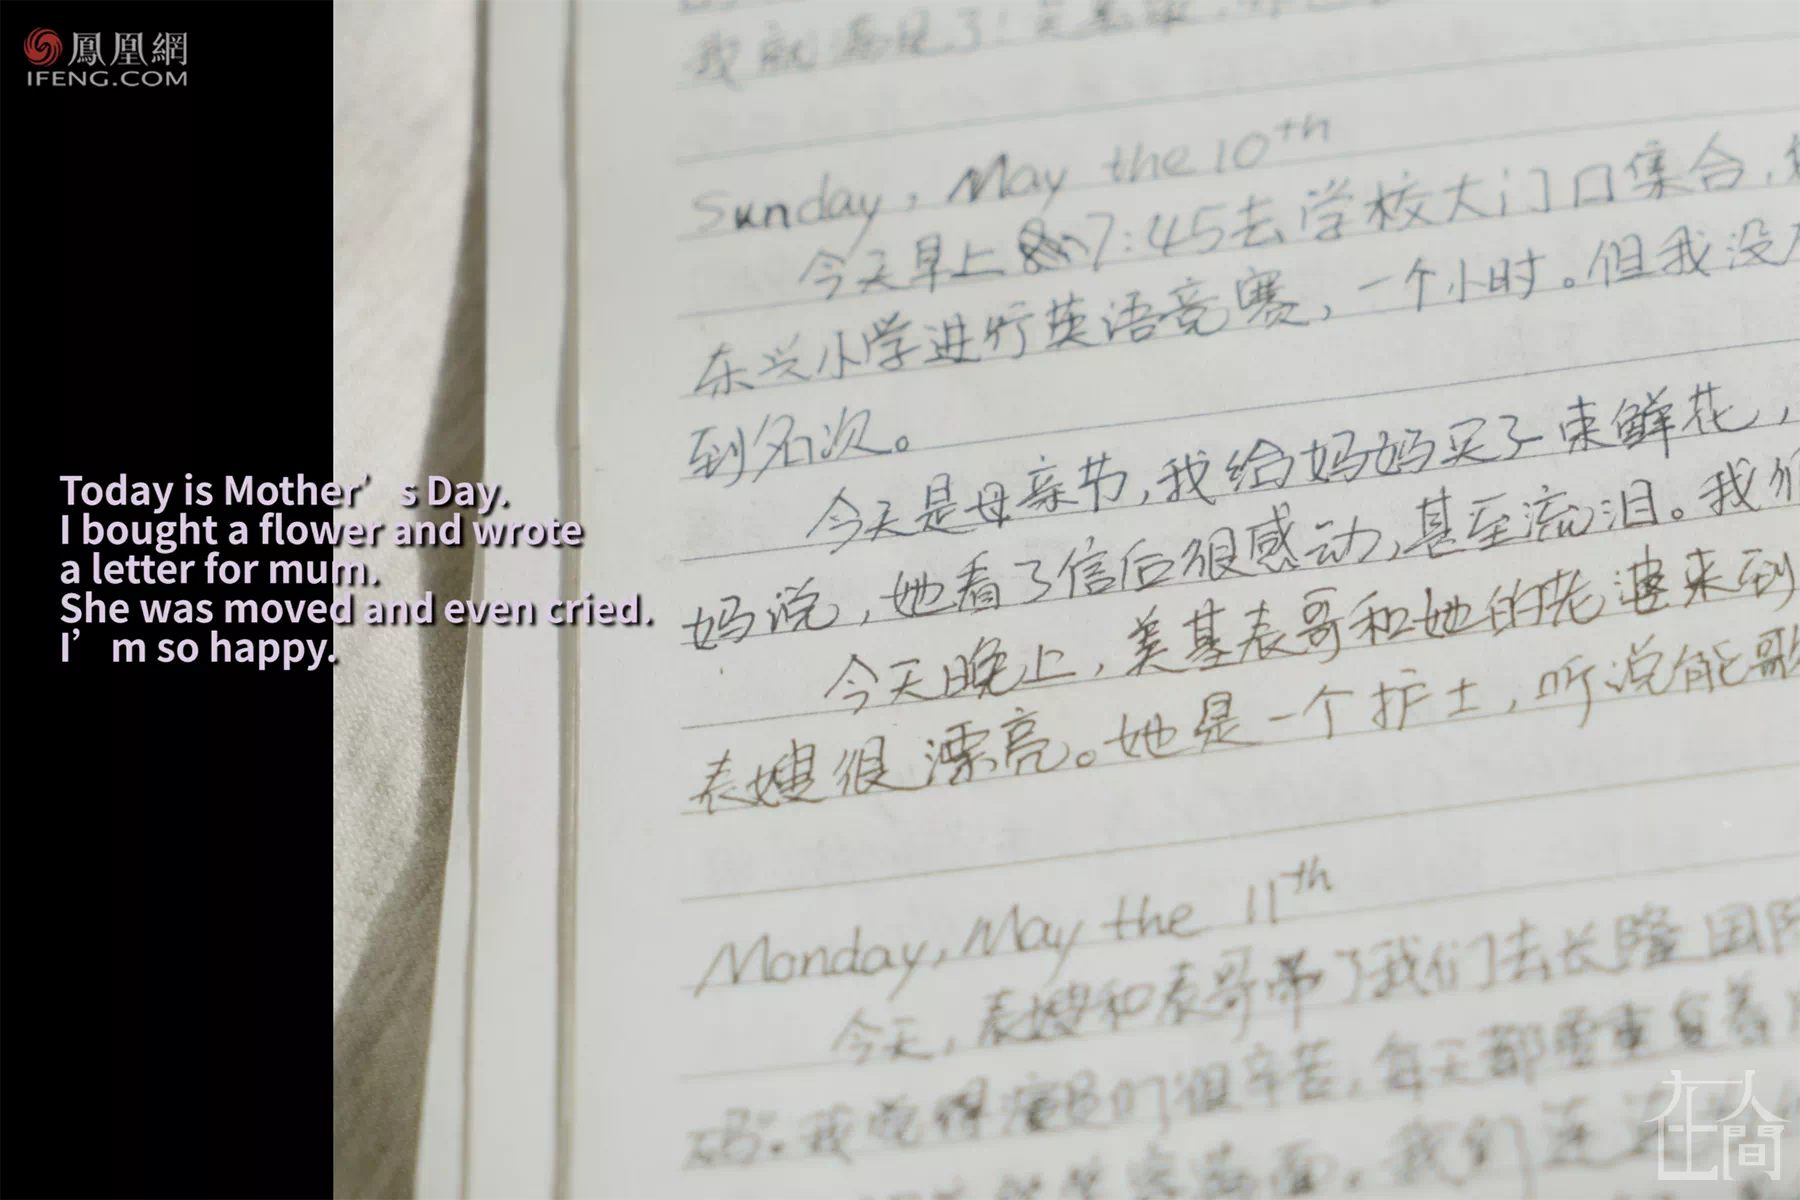 鳳凰網
IFENG.COM
Today is Mother's Day.
I bought a flower and wrote
a letter for mum.
She was moved and even cried.
I'm so happy.
我就看见了!
Sunday, May the 10th
今天早上 7:45去学校大门口集合,
东兴小学进行英语竞赛,一个小时。但我没
到名次。
今天是母亲节,我给妈妈买了束鲜花,
妈说,她看了信后很感动,甚至流泪。我们
今天晚上,美基表哥和她的老婆来到
表嫂很漂亮。她是一个护士,听说能歌
Monday, May the 11th
今天,表嫂和表哥带了我们去长隆国际
我觉得演员们很辛苦,每天都要重复着
我们还
在人間